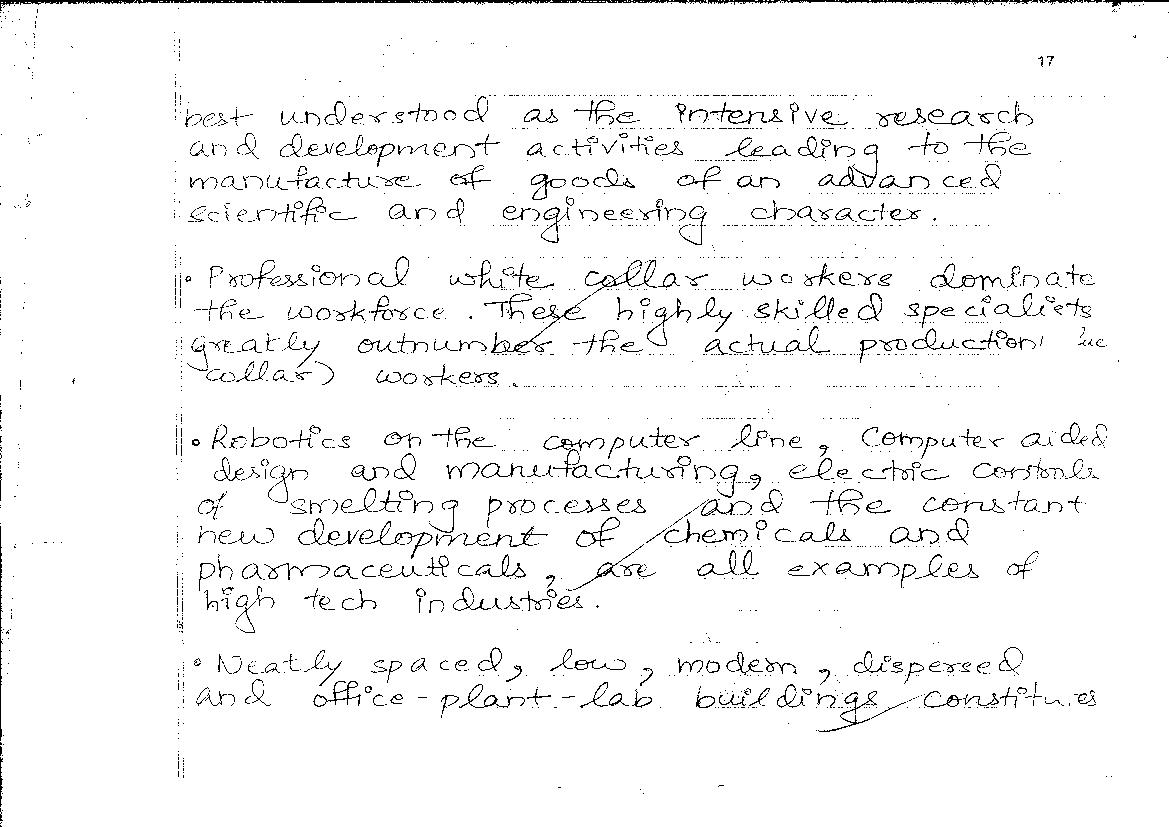 17
best understood as the intensive research
and development activities leading to the
manufacture of goods of an advanced
scientific and engineering character.
• Professional white collar workers dominate
the workforce. These highly skilled specialists
greatly outnumber the actual production
collar) workers.
• Robotics on the computer line, computer aided
design and manufacturing, electric controls
of smelting processes and the constant
new development of chemicals and
pharmaceuticals, are all examples of
high tech industries.
• Neatly spaced, low, modern, dispersed
and office-plant-lab buildings constitutes